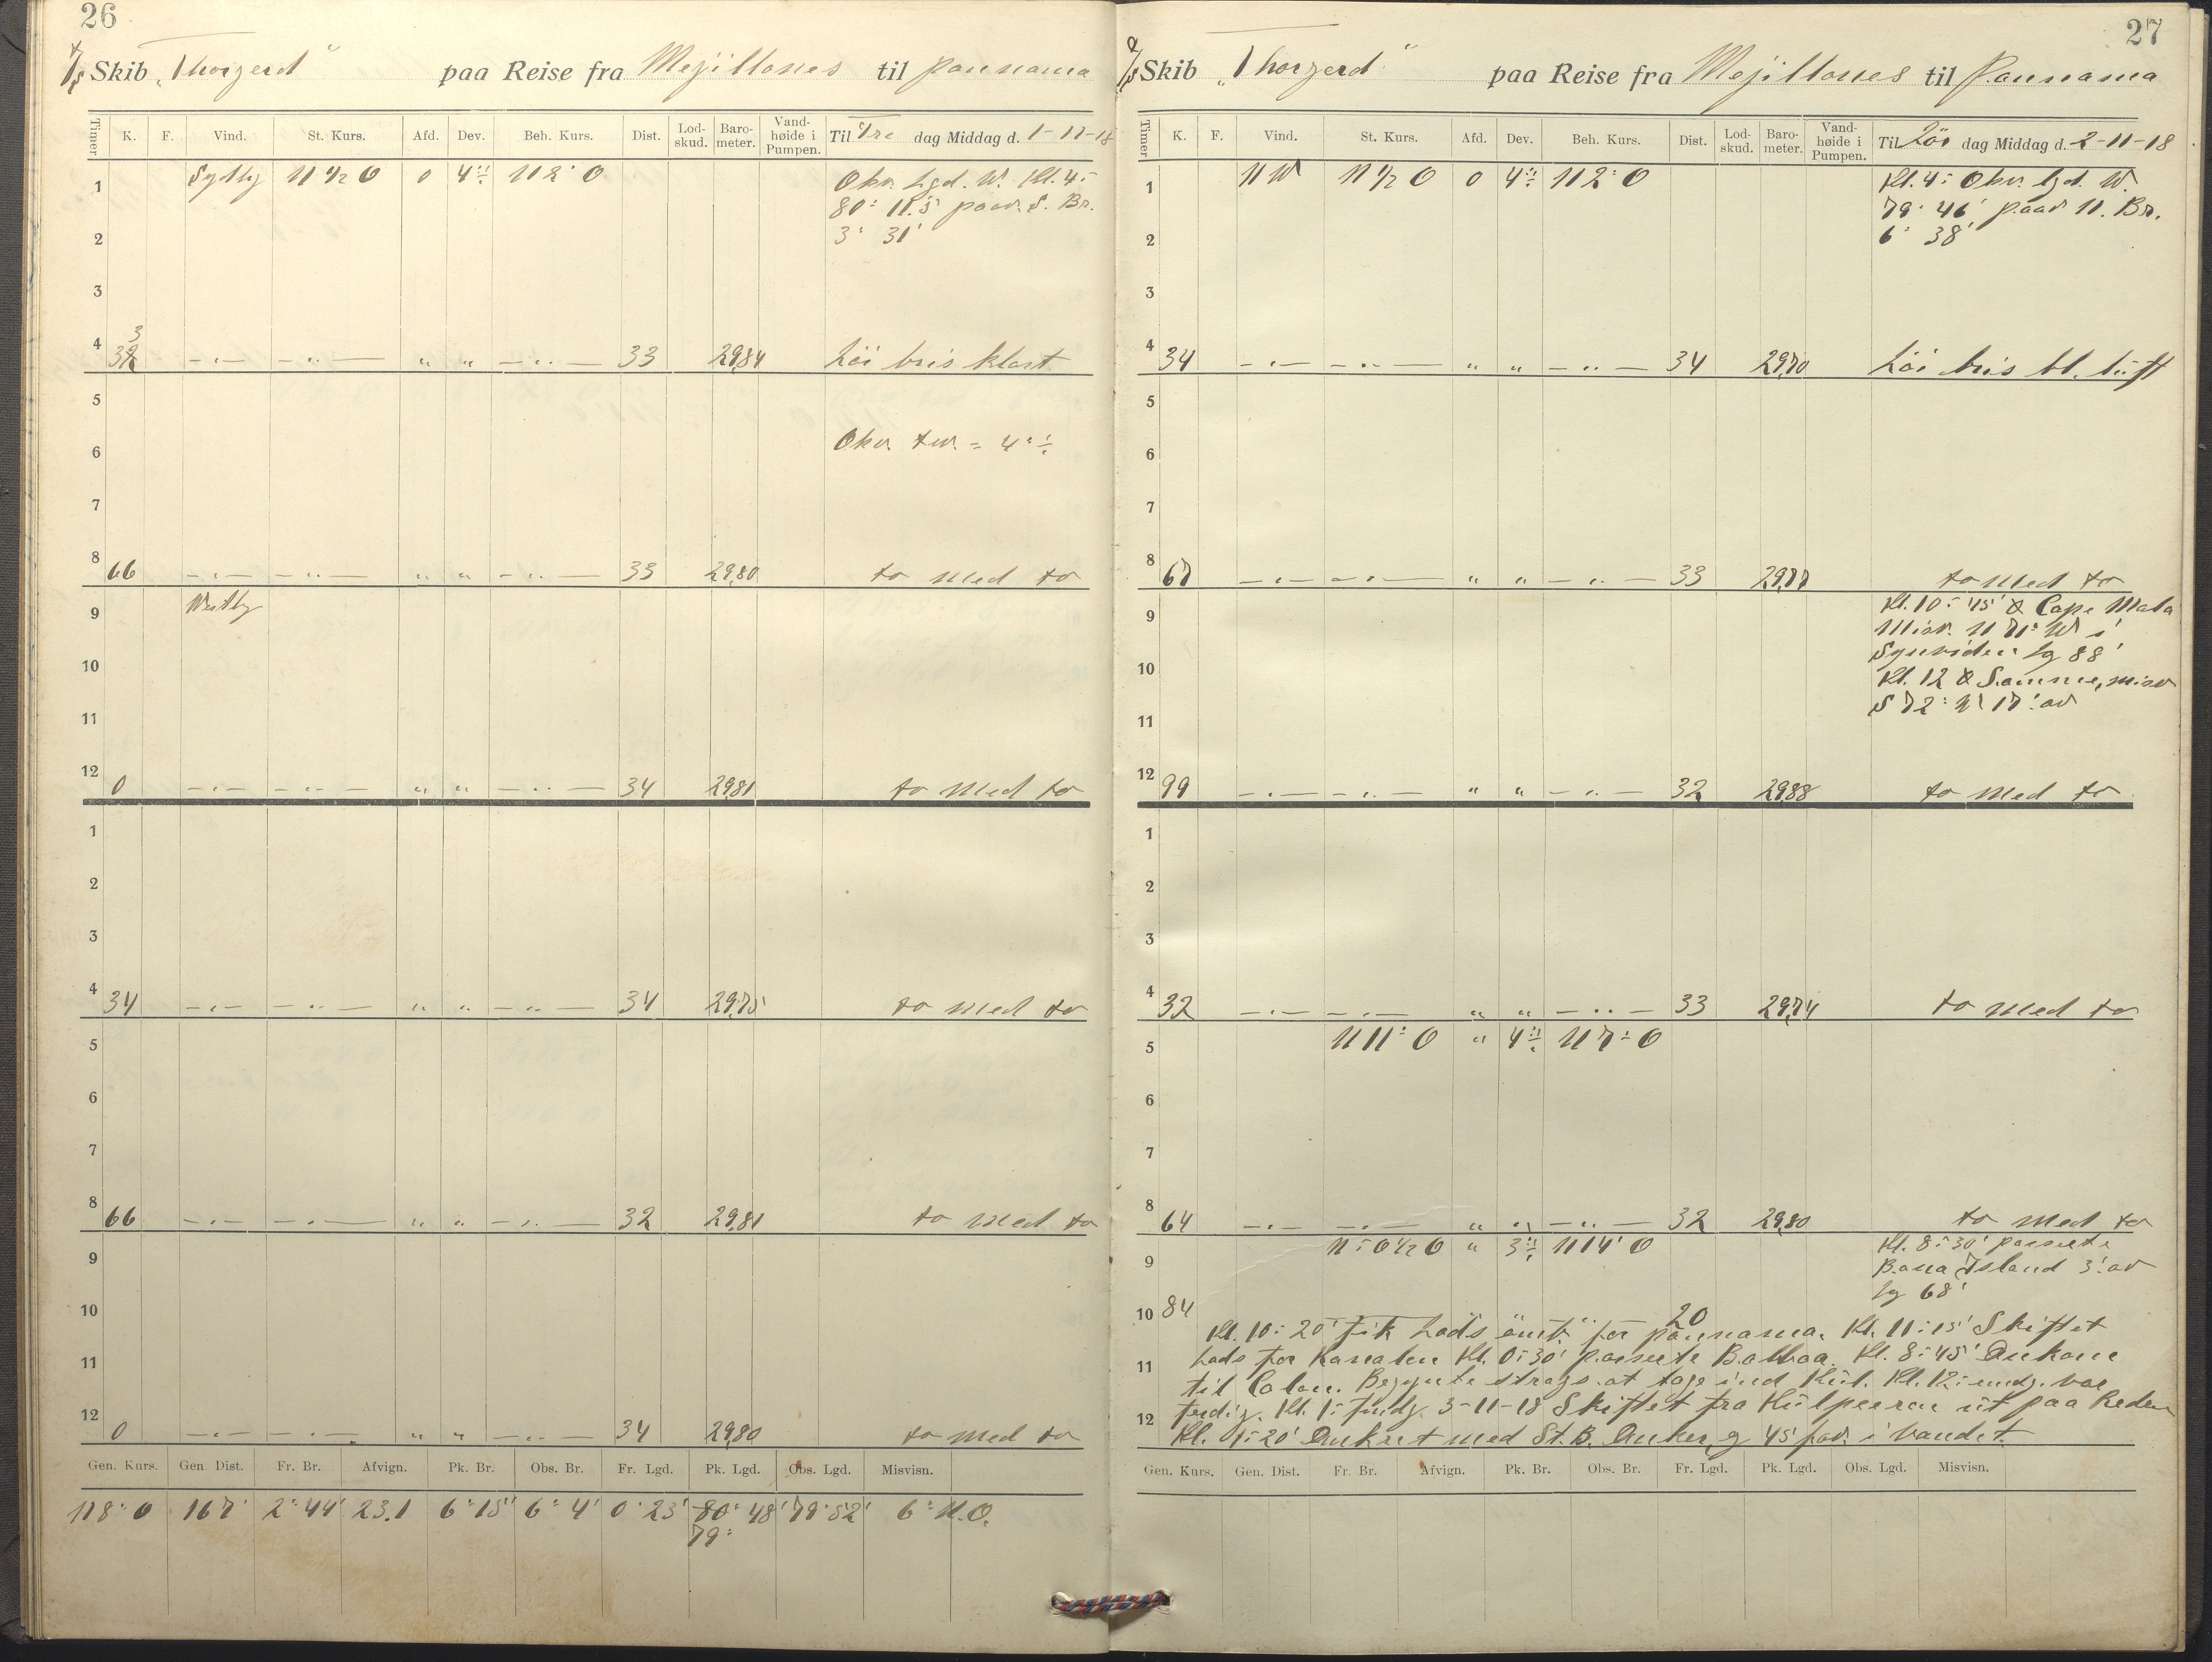 26
S/S Skib „Thorgerd" paa Reise fra Mejillones til pannama
Timer K. F. Vind. St. Kurs. Afd. Dev. Beh. Kurs. Dist. Lod-skud. Baro-meter. Vand-høide i Pumpen. Til Fre dag Middag d. 1-11-18
1 Sydlig N ½ O 0 4°÷ N 2° O Obsv. Lgd. W. Kl. 4-
80° 11.5' paav. S. Br.
2 3° 31'
3
3
4 32 -"- -"- " " -"- 33 29,84 Löi bris klart
5
6 Obsv. dev. = 4°÷
7
8 66 -"- -"- " " -"- 33 29,80 do med do
9 Vestlig
10
11
12 0 -"- -"- " " -"- 34 29,81 do med do
1
2
3
4 34 -"- -"- " " -"- 34 29,75 do med do
5
6
7
8 66 -"- -"- " " -"- 32 29,81 do med do
9
10
11
12 0 -"- -"- " " -"- 34 29,80 do med do
Gen. Kurs. Gen. Dist. Fr. Br. Afvign. Pk. Br. Obs. Br. Fr. Lgd. Pk. Lgd. Obs. Lgd. Misvisn.
N 8° O 167' 2° 44' 23.1 6° 15' 6° 4' 0° 23' 80° 48' 79° 52' 6° N.O.
79°
27
S/S Skib „Thorgerd" paa Reise fra Mejillones til Pannama
Timer K. F. Vind. St. Kurs. Afd. Dev. Beh. Kurs. Dist. Lod-skud. Baro-meter. Vand-høide i Pumpen. Til Lör dag Middag d. 2-11-18
1 NW N ½ O 0 4°÷ N 2° O Kl. 4- Obsv. lgd. W.
79° 46' paav N. Br.
2 6° 38'
3
4 34 -"- -"- " " -"- 34 29,70 Löi bris bl. luft
5
6
7
8 67 -"- -"- " " -"- 33 29,77 do med do
9 Kl. 10-45' Cape Mala
Misv. N 71° W i
10 Synviden lg 88'
Kl. 12 Samme, misv
11 S 72° W 17' av
12 99 -"- -"- " " -"- 32 29,88 do med do
1
2
3
4 32 -"- -"- " " -"- 33 29,74 do med do
5 N 11° O " 4°÷ N 7° O
6
7
8 64 -"- -"- " " -"- 32 29,80 do med do
9 N ½ O " 3°÷ N 14° O Kl. 8-30' passerte
Bona Island 3' av
lg 68'
10 84 20
Kl. 10-20' fik Lods ömb. for pannama. Kl. 11-15' Skiftet
11 Lods for Kanalen Kl. 0-30' passerte Balboa. Kl. 8-45' Ankom
til Colon. Begynte strags at tage ind Kul. Kl. 12- emdg. var
12 ferdig. Kl. 1- fmdg 3-11-18 Skiftet fra Kulpeeran ut paa Reden
Kl. 1-20' Ankret med St.B. Anker, og 45 fav. i Vandet.
Gen. Kurs. Gen. Dist. Fr. Br. Afvign. Pk. Br. Obs. Br. Fr. Lgd. Pk. Lgd. Obs. Lgd. Misvisn.